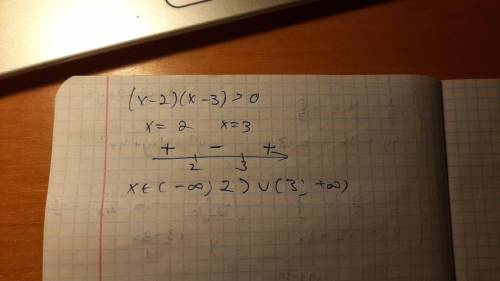 (x-2)(x-3)>0
x=2 x=3
+ - +
2 3
x∈(-∞, 2)∪(3; +∞)